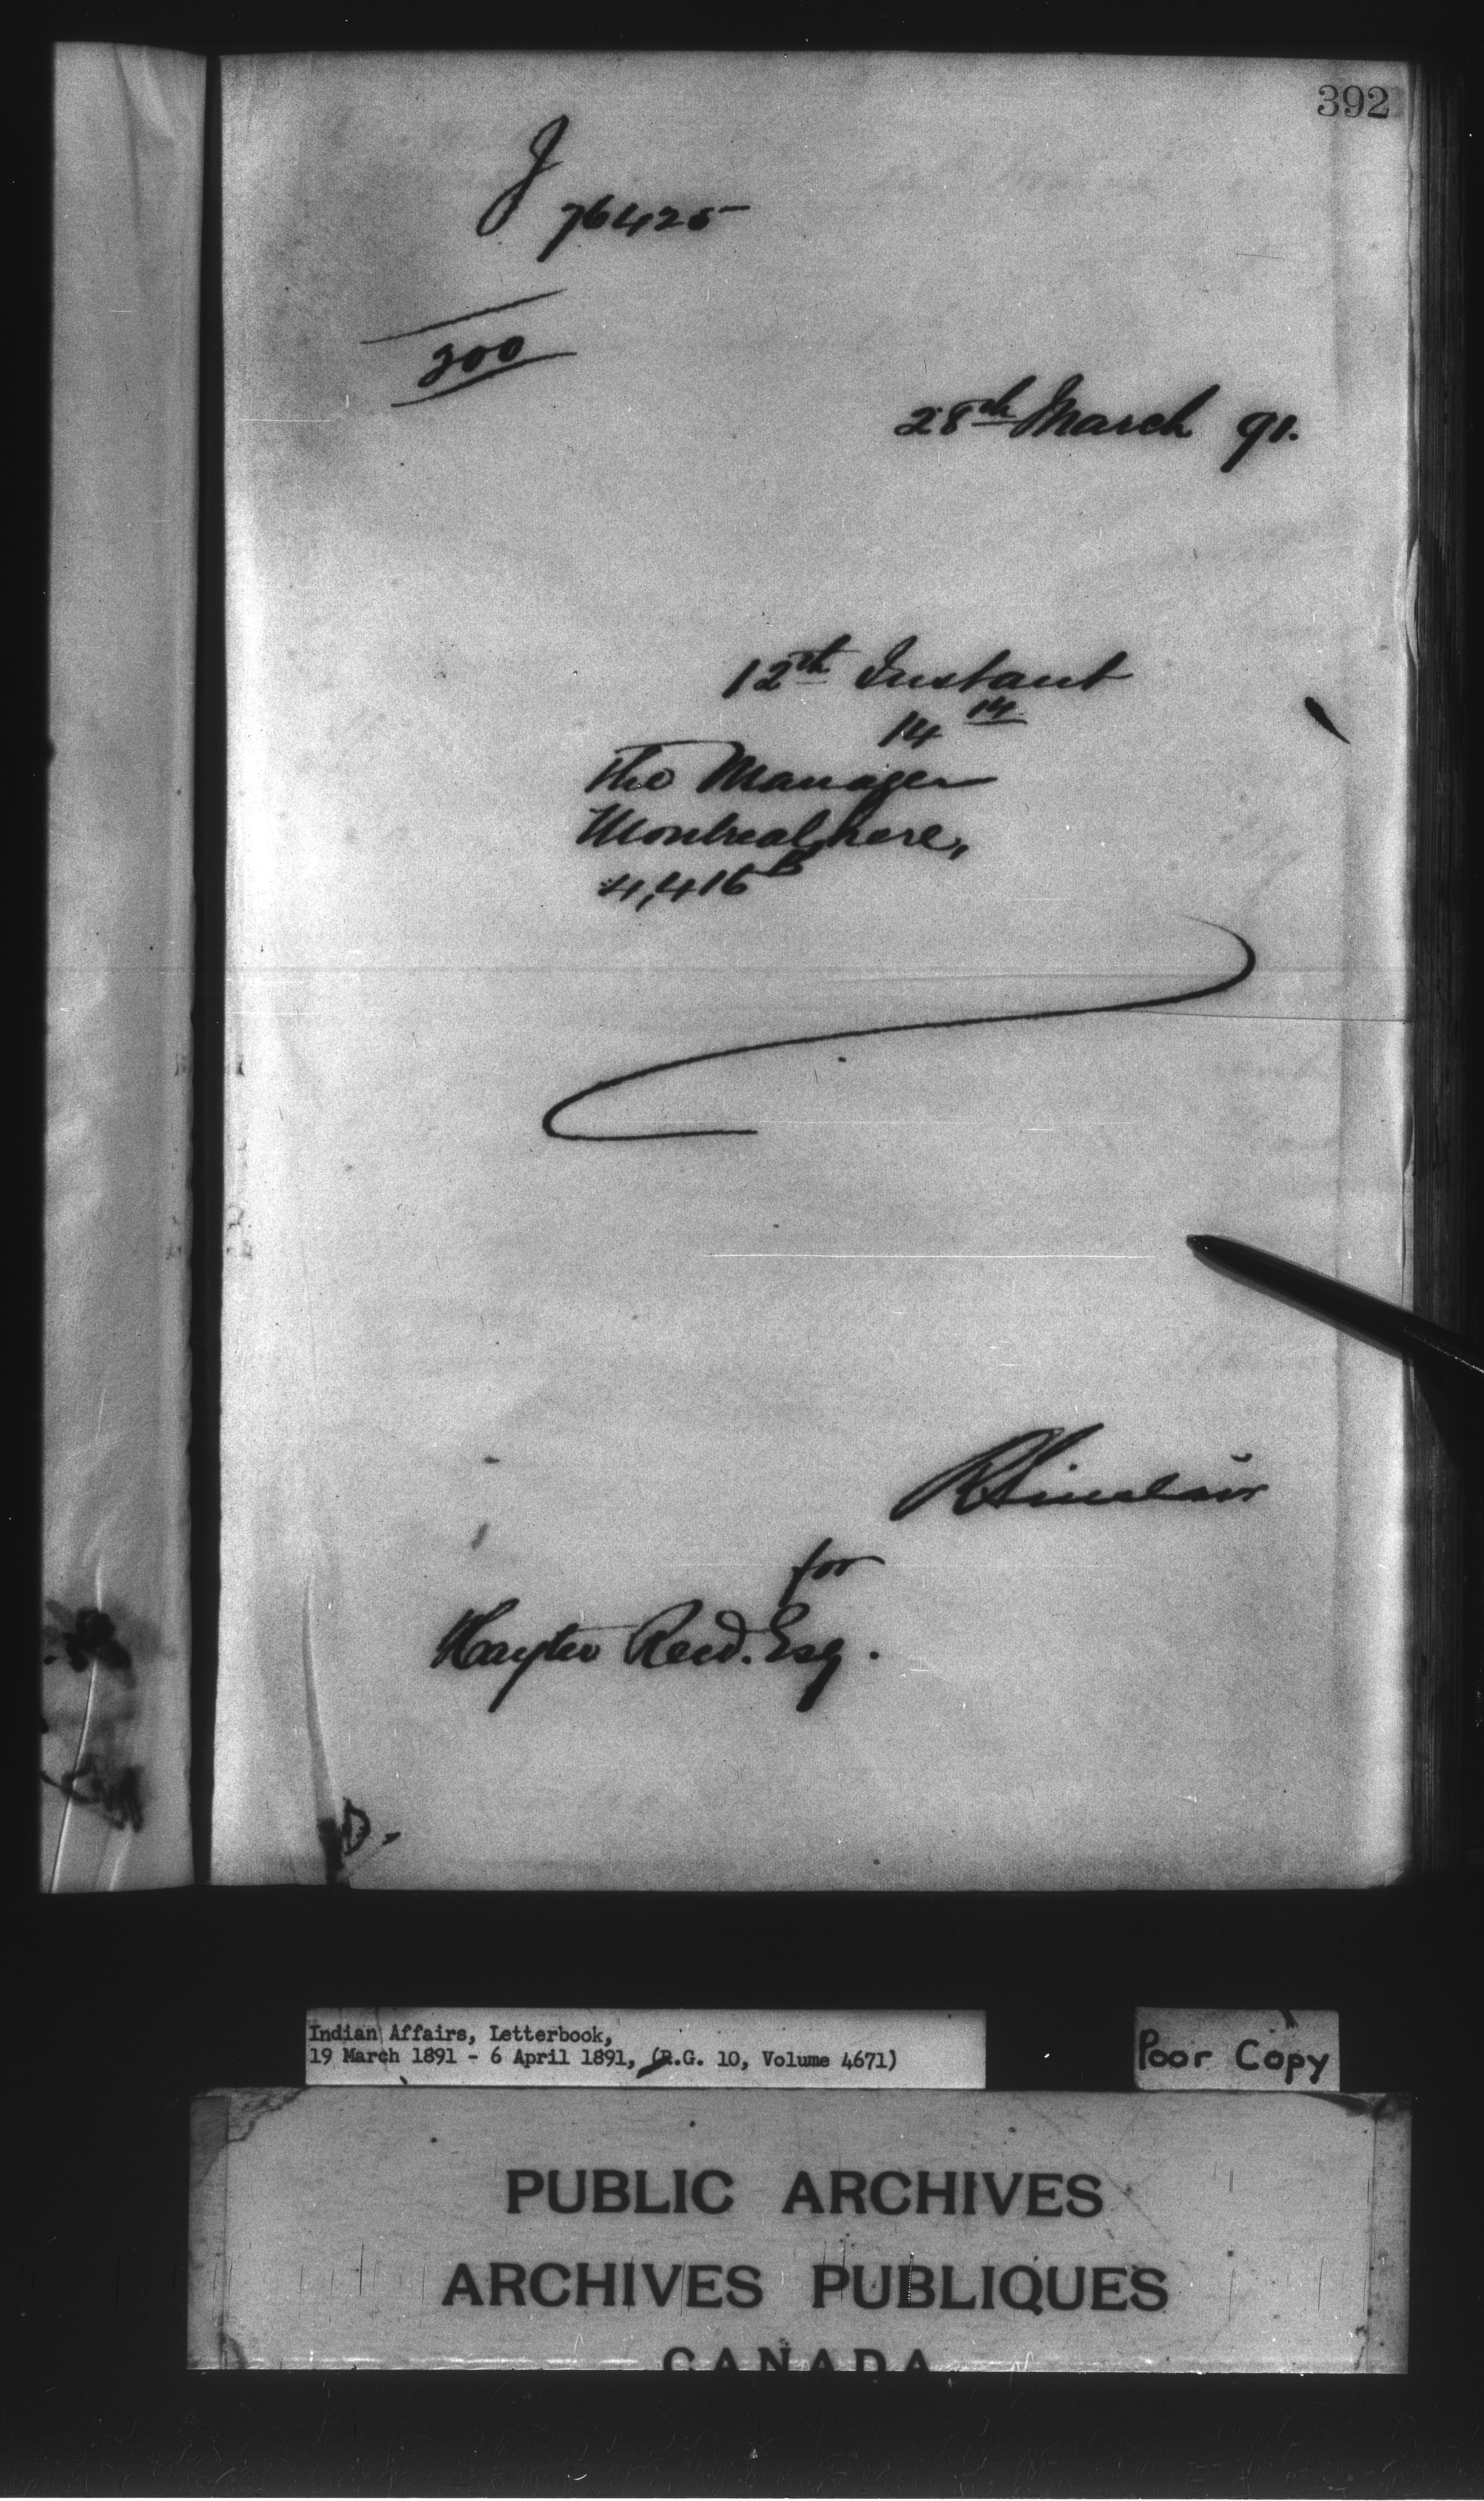 392
J
76425
300
28th March 91.
12th Instant
14 14
The Manager
Montreal here,
4,416 B
RSinclair
for
Hayter Reed. Esq.
D.
Indian Affairs, Letterbook,
19 March 1891 - 6 April 1891, (R.G. 10, Volume 4671)
Poor Copy
PUBLIC ARCHIVES
ARCHIVES PUBLIQUES
CANADA